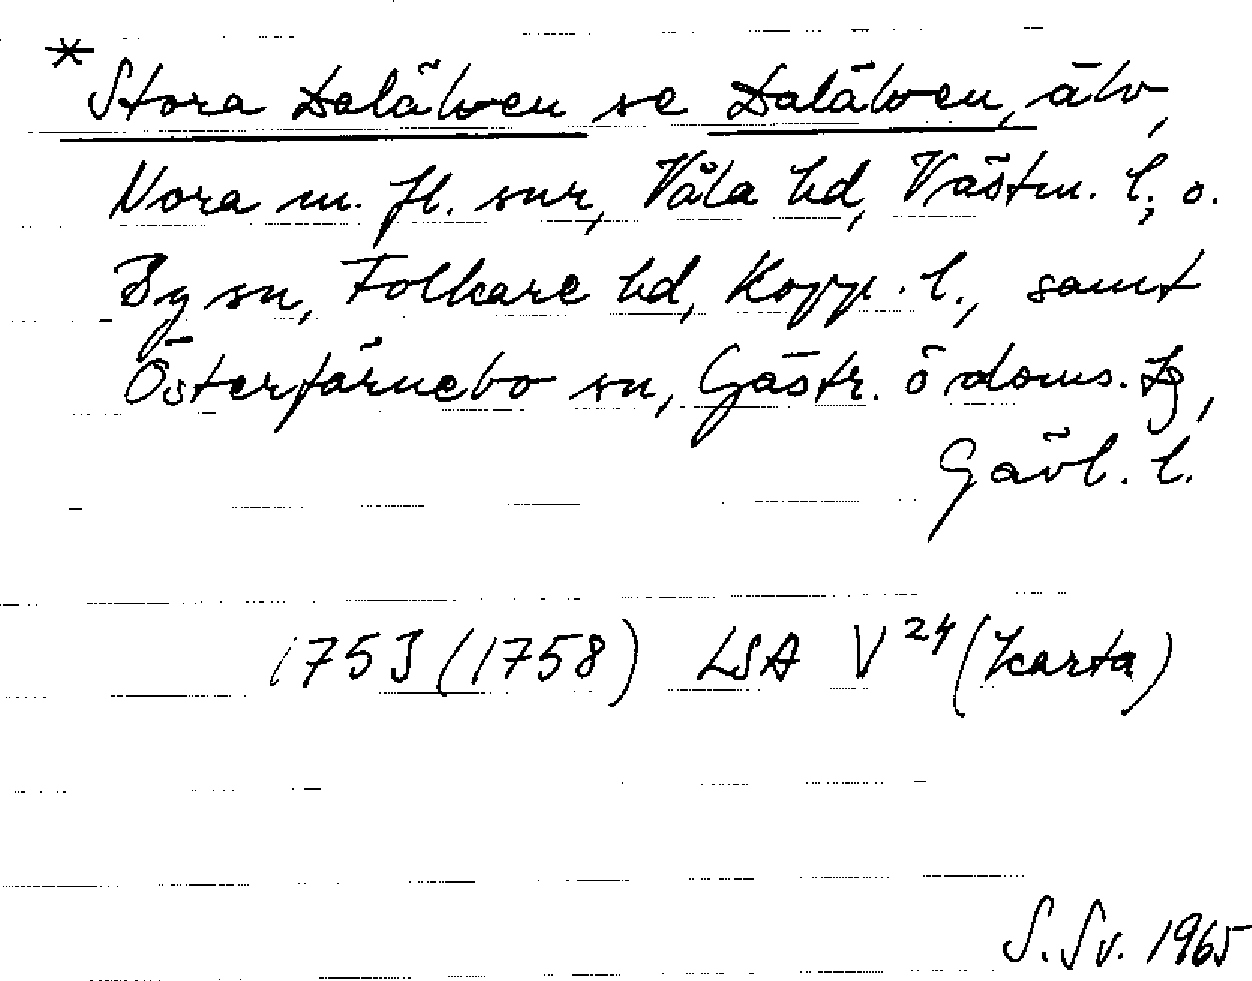 * Stora Dalälven se Dalälven, älv,
Nora m. fl. snr, Våla hd, Västm. l., o.
By sn, Folkare hd, Kopp. l., samt
Österfärnebo sn, Gästr. ö doms. tg,
Gävl. l.
1753 (1758) LSA V 24 (karta)
S. Sv. 1965